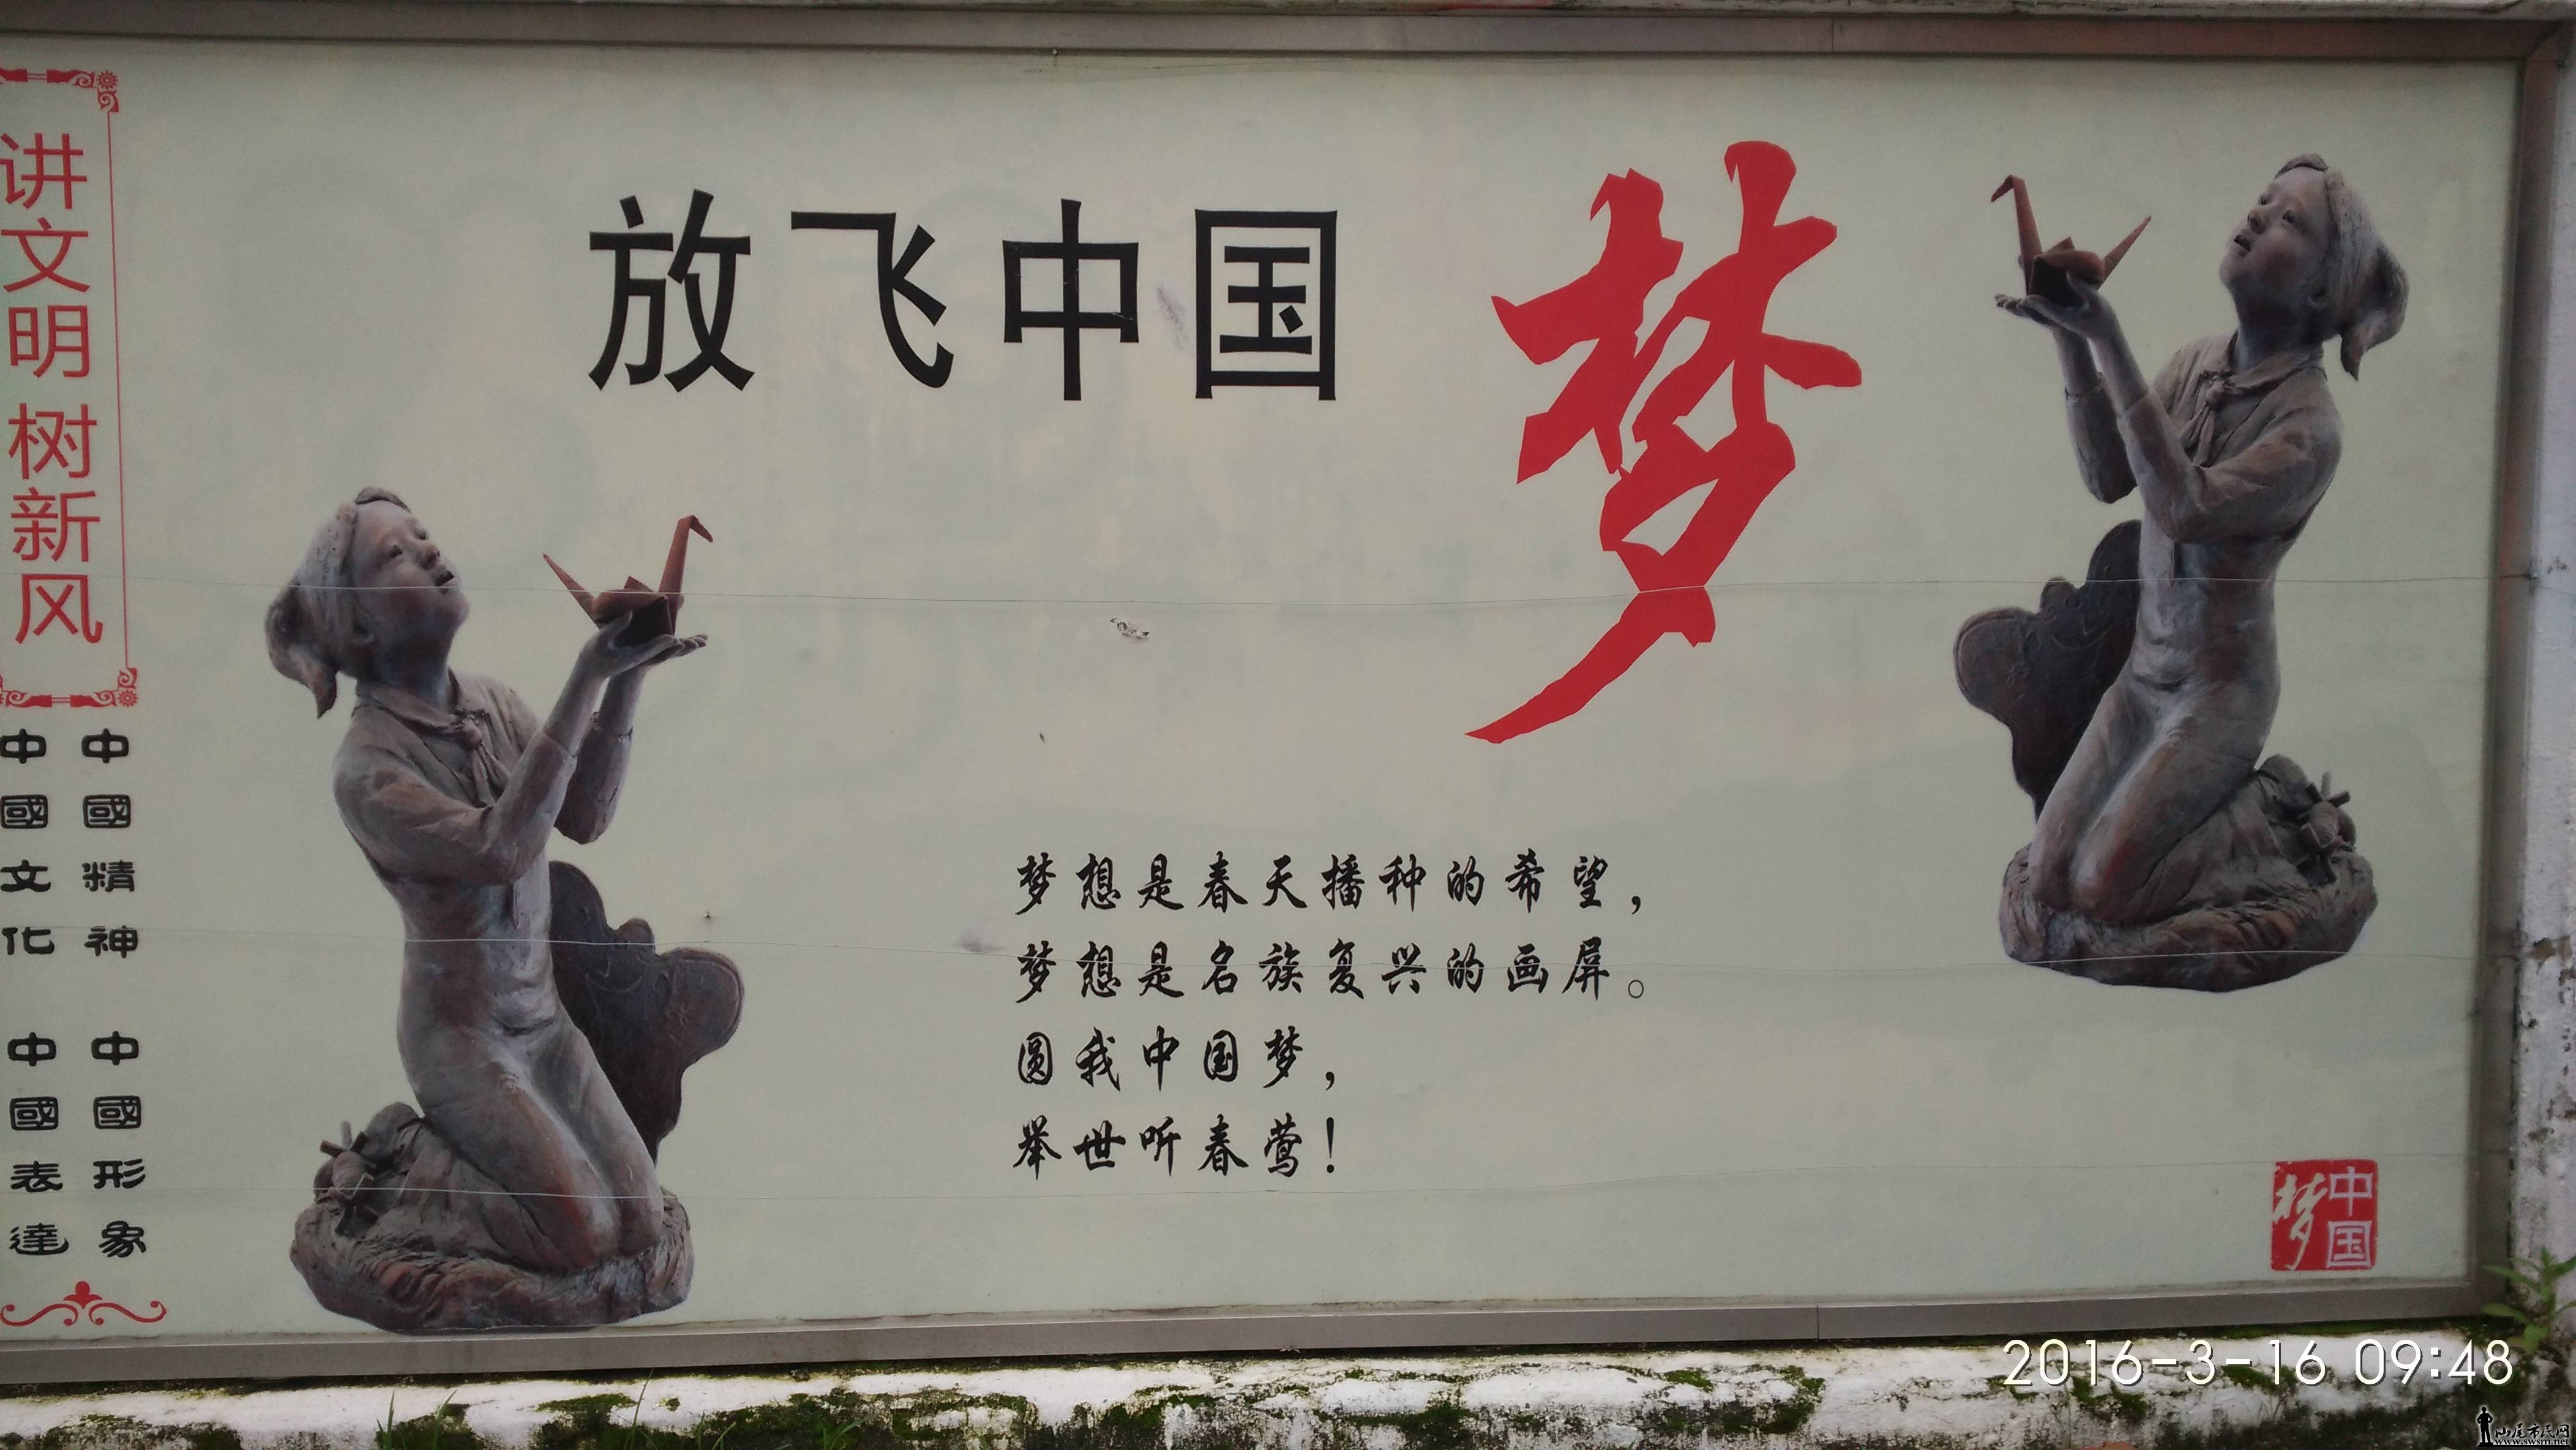 讲文明 树新风
中國精神 中國形象
中國文化 中國表達
放飞中国梦
梦想是春天播种的希望，
梦想是名族复兴的画屏。
圆我中国梦，
举世听春莺！
中国梦
2016-3-16 09:48
汕尾市民网
www.swsm.net